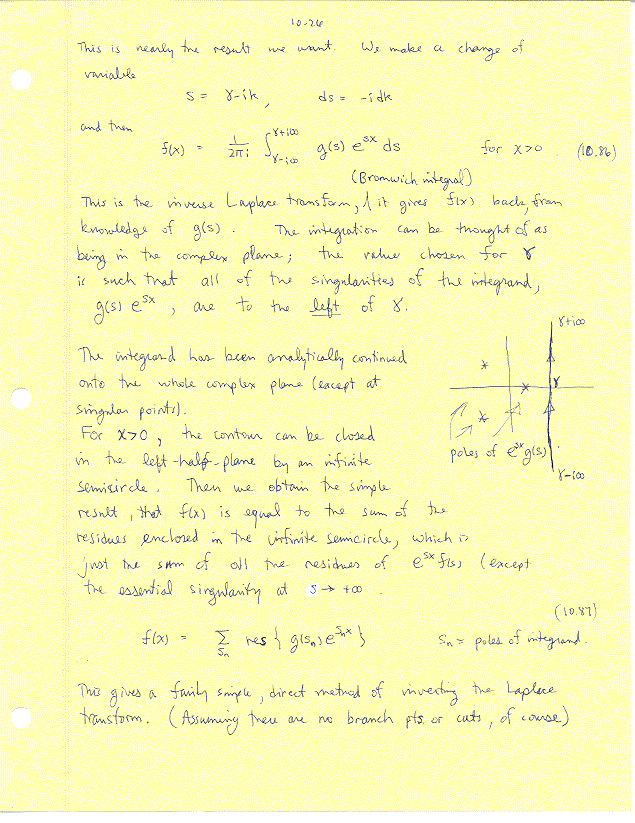 10-26
This is nearly the result we want. We make a change of
variable
s = γ-ik, ds = -idk
and then
f(x) = 1/2πi ∫_{γ-i∞}^{γ+i∞} g(s) e^{sx} ds for x>0 (10.86)
(Bromwich integral)
This is the inverse Laplace transform, & it gives f(x) back, from
knowledge of g(s). The integration can be thought of as
being in the complex plane; the value chosen for γ
is such that all of the singularities of the integrand,
g(s) e^{sx}, are to the left of γ.
γ+i∞
The integrand has been analytically continued
onto the whole complex plane (except at
singular points).
γ
For x>0, the contour can be closed
in the left-half-plane by an infinite
poles of e^{sx} g(s)
γ-i∞
semicircle. Then we obtain the simple
result, that f(x) is equal to the sum of the
residues enclosed in the infinite semicircle, which is
just the sum of all the residues of e^{sx} f(s) (except
the essential singularity at s→+∞.
(10.87)
f(x) = Σ_{s_n} res { g(s_n) e^{s_n x} } s_n = poles of integrand.
This gives a fairly simple, direct method of inverting the Laplace
transform. (Assuming there are no branch pts. or cuts, of course)